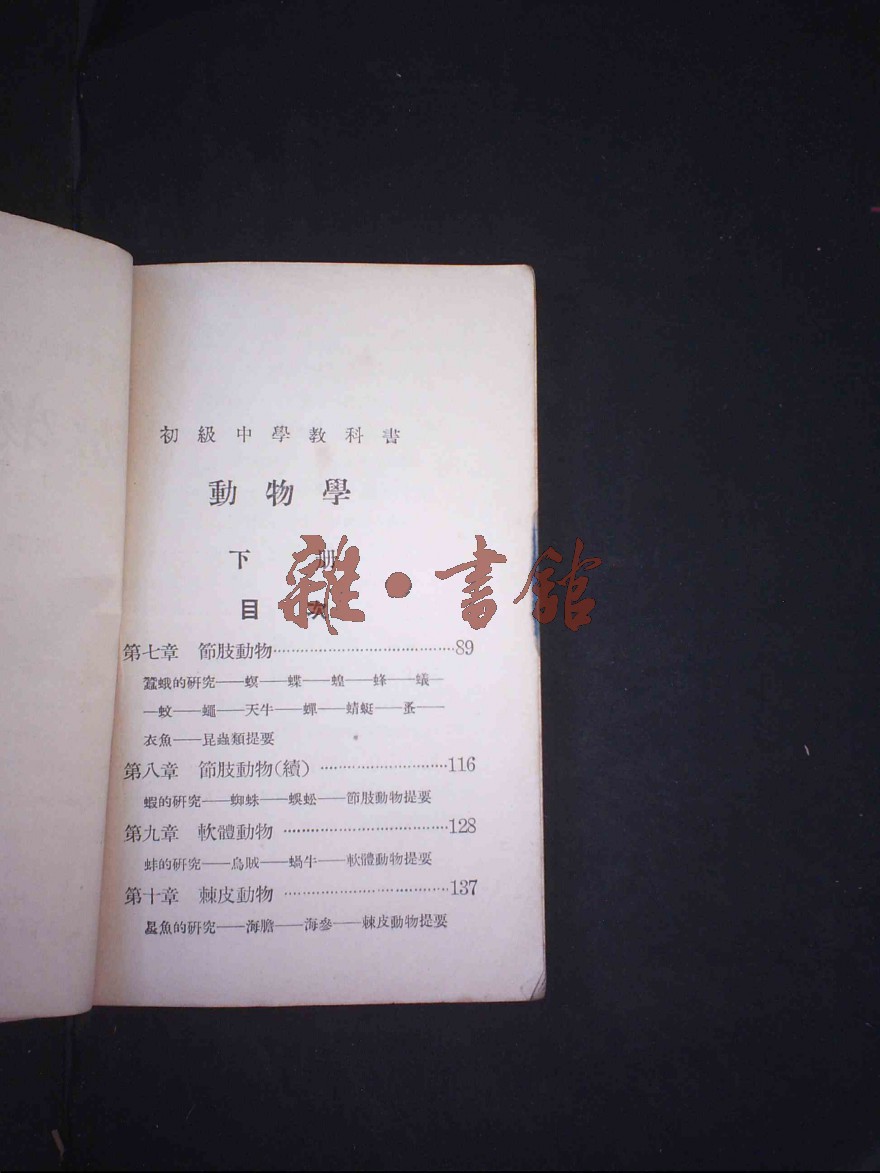 初級中學教科書
動物學
下册
目次
雜·書館
第七章 節肢動物……………………………89
蠶蛾的研究——螟——蝶——蝗——蜂——蟻—
—蚊——蠅——天牛——蟬——蜻蜓——蚤——
衣魚——昆蟲類提要
第八章 節肢動物(續)……………………116
蝦的研究——蜘蛛——蜈蚣——節肢動物提要
第九章 軟體動物……………………………128
蚌的研究——烏賊——蝸牛——軟體動物提要
第十章 棘皮動物……………………………137
星魚的研究——海膽——海參——棘皮動物提要